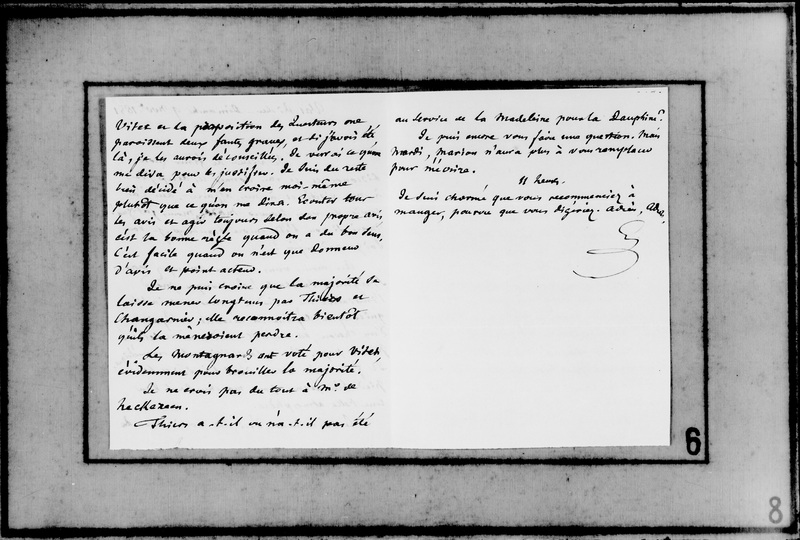 Vitet et la proposition des Questeurs me
paraissent deux fautes graves, et si j'avois été
là, je les aurois déconseillées. Je verrai ce qu'on
me dira pour les justifier. Je suis du reste
bien décidé à m'en croire moi-même
plutôt que ce qu'on me dira. Ecouter tous
les avis et agir toujours selon son propre avis,
c'est la bonne règle quand on a du bon sens.
C'est facile quand on n'est que donneur
d'avis et point acteur.
Je ne puis croire que la majorité se
laisse mener longtems par Thiers et
Changarnier; elle reconnoitra bientôt
qu'ils la mèneroient perdre.
Les Montagnards ont voté pour Vitet,
évidemment pour brouiller la majorité.
Je ne crois pas du tout à Mr. de
Thiers a-t-il ou n'a-t-il pas été
au service de la Madeleine pour la Dauphine?
Je puis encore vous faire une question. Mais
mardi, Marion n'aura plus à vous remplacer
pour m'écrire.
11 heures.
Je suis charmé que vous recommenciez à
manger, pourvu que vous digériez. Adieu, Adieu,
G
6
8